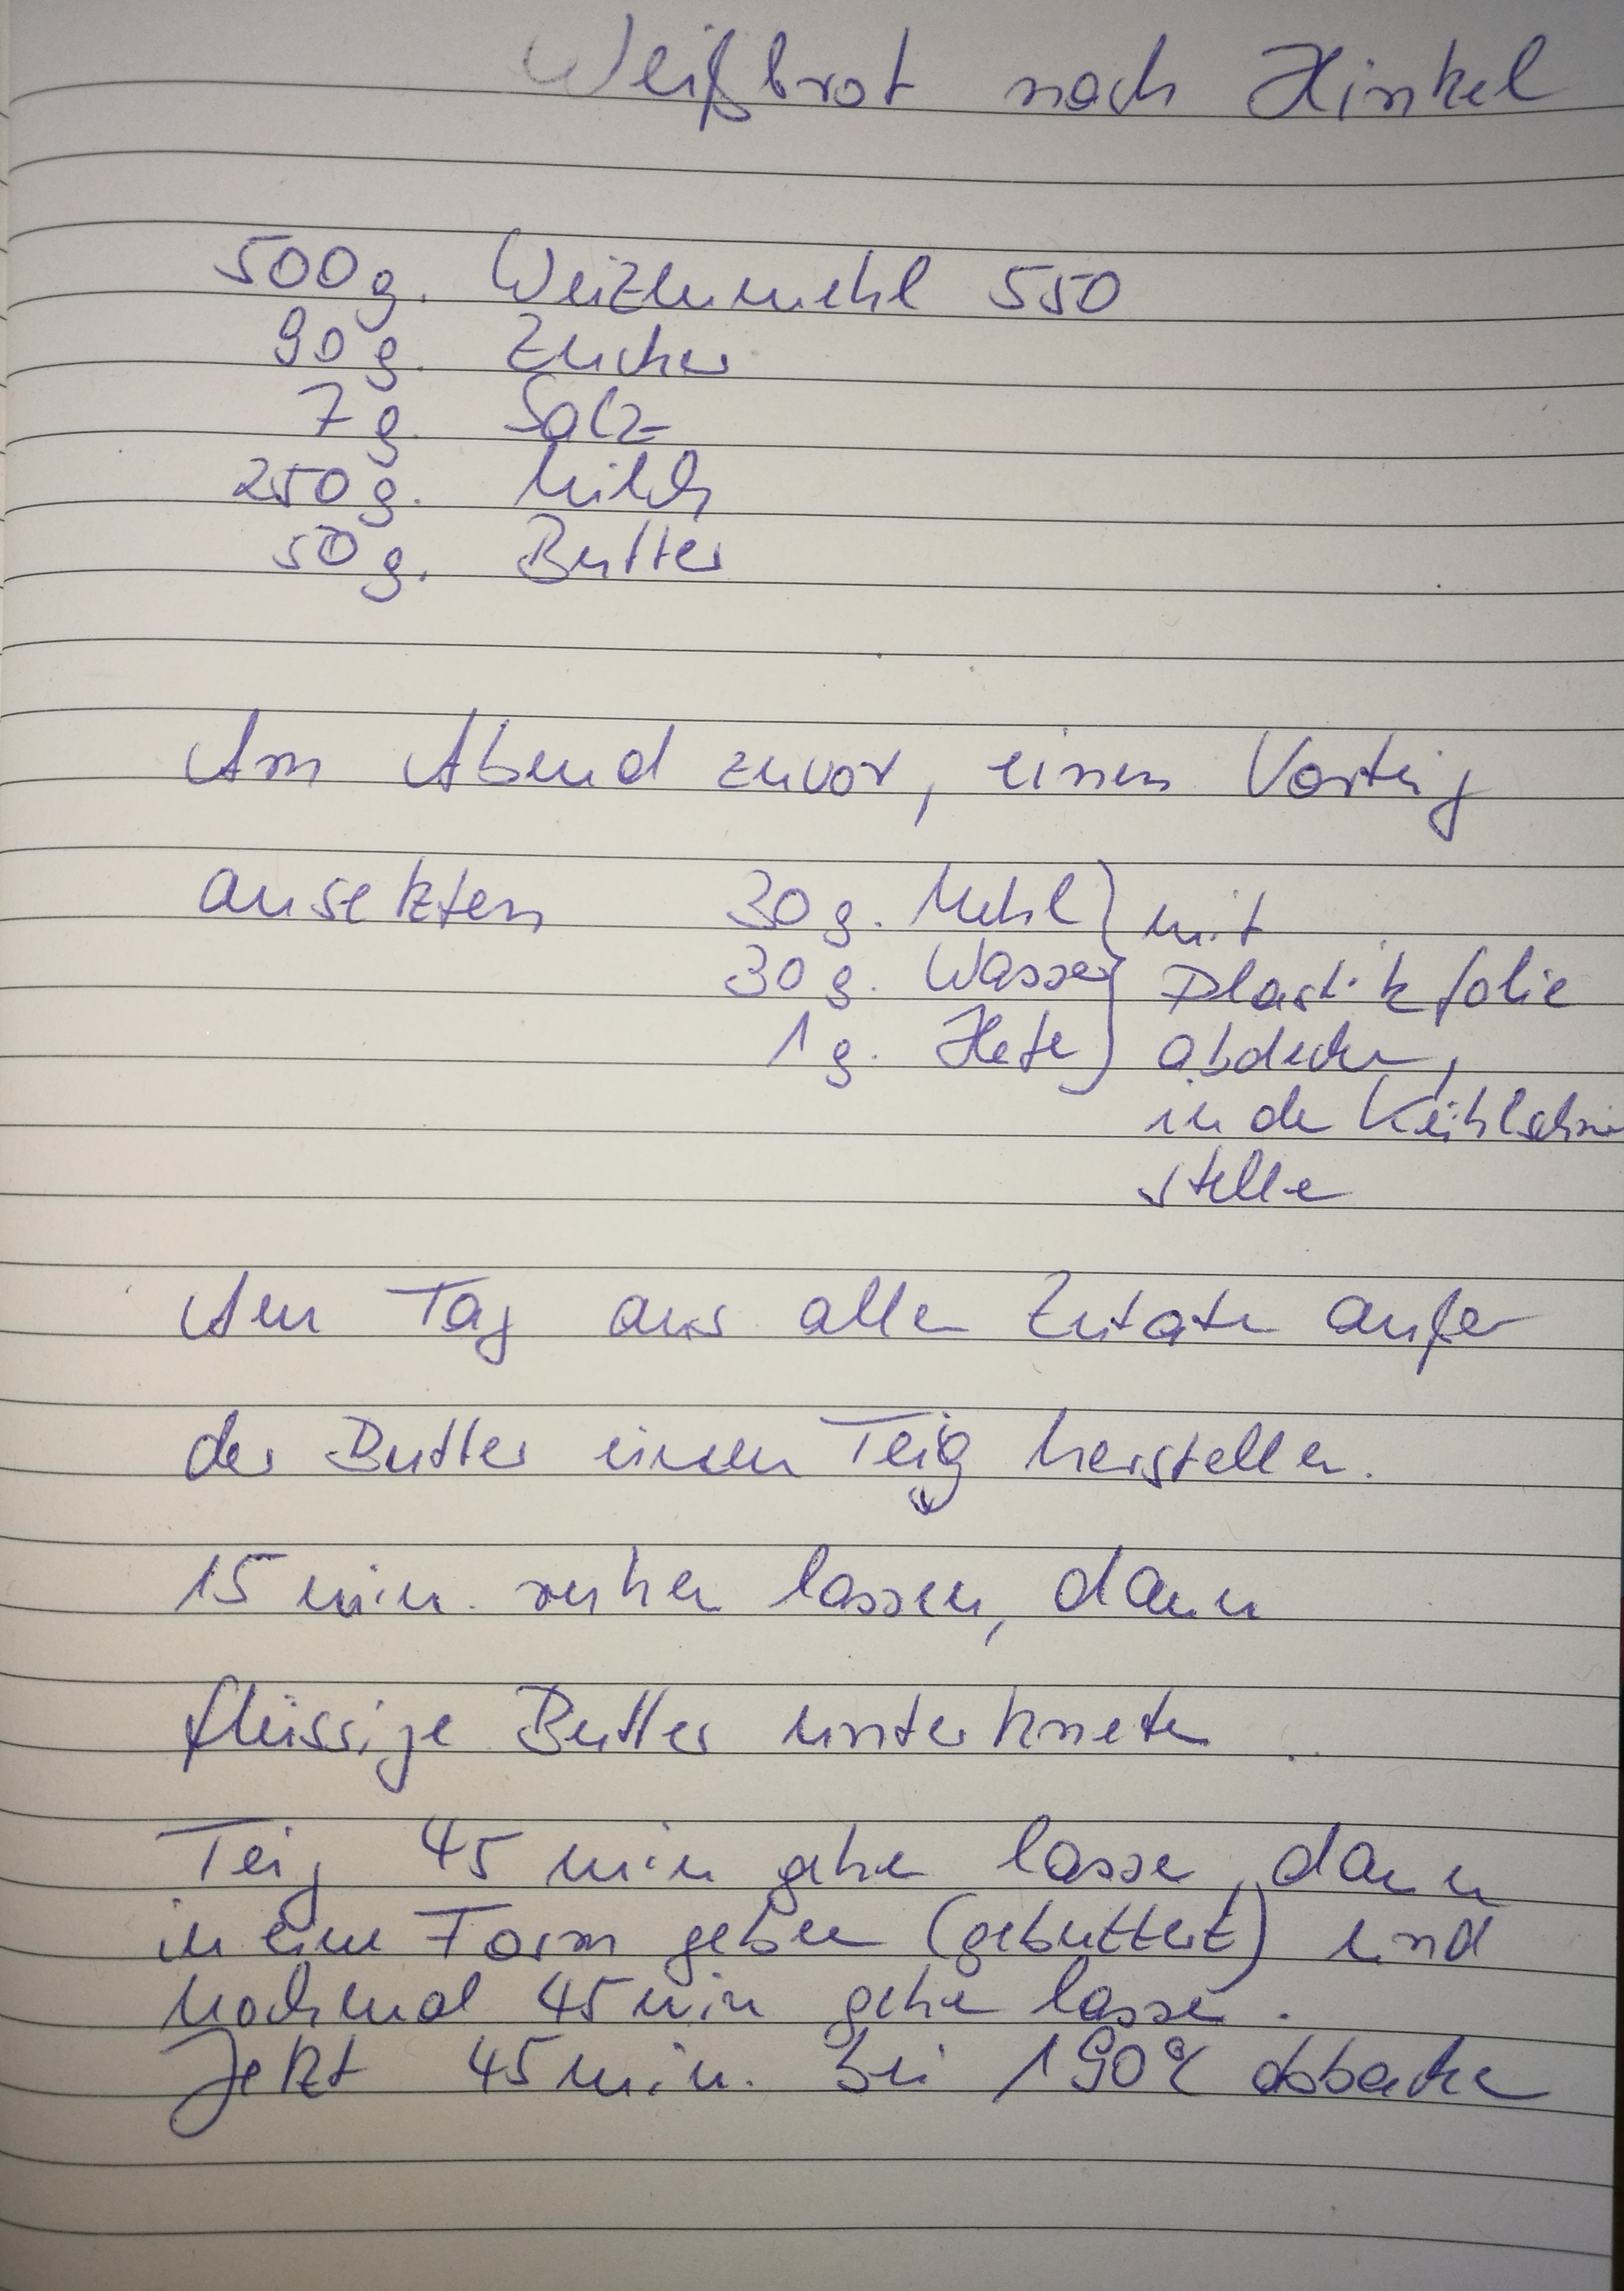 Weißbrot nach Hinkel
500g. Weizenmehl 550
90g. Zucker
7g. Salz
250g. Milch
50g. Butter
Am Abend zuvor, einen Vorteig
ansetzten 30g. Mehl } mit
30g. Wasser } Plastikfolie
1g. Hefe } abdecken,
in den Kühlschra
stellen
Am Tag aus allen Zutaten außer
der Butter einen Teig herstellen.
15 min. ruhen lassen, dann
flüssige Butter unterkneten.
Teig 45 min gehen lassen, dann
in eine Form geben (gebuttert) und
nochmal 45 min gehen lassen.
Jetzt 45 min. bei 190°C abbacken